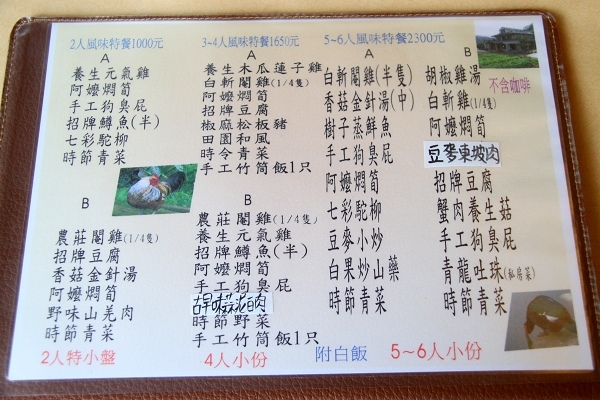 2人風味特餐1000元
A
養生元氣雞
阿嬤燜筍
手工狗臭屁
招牌鱒魚(半)
七彩駝柳
時節青菜
B
農莊閹雞(1/4隻)
招牌豆腐
香菇金針湯
阿嬤燜筍
野味山羌肉
時節青菜
2人特小盤
3~4人風味特餐1650元
A
養生木瓜蓮子雞
白斬閹雞(1/4隻)
阿嬤燜筍
招牌豆腐
椒麻松板豬
田園和風
時令青菜
手工竹筒飯1只
B
農莊閹雞(1/4隻)
養生元氣雞
招牌鱒魚(半)
阿嬤燜筍
手工狗臭屁
時節野菜
手工竹筒飯1只
4人小份
5~6人風味特餐2300元
A
白斬閹雞(半隻)
香菇金針湯(中)
樹子蒸鮮魚
手工狗臭屁
阿嬤燜筍
七彩駝柳
豆麥小炒
白果炒山藥
時節青菜
附白飯
B
胡椒雞湯
不含咖啡
白斬雞(1/4隻)
阿嬤燜筍
豆麥東坡肉
招牌豆腐
蟹肉養生菇
手工狗臭屁
青龍吐珠(私房菜)
時節青菜
5~6人小份